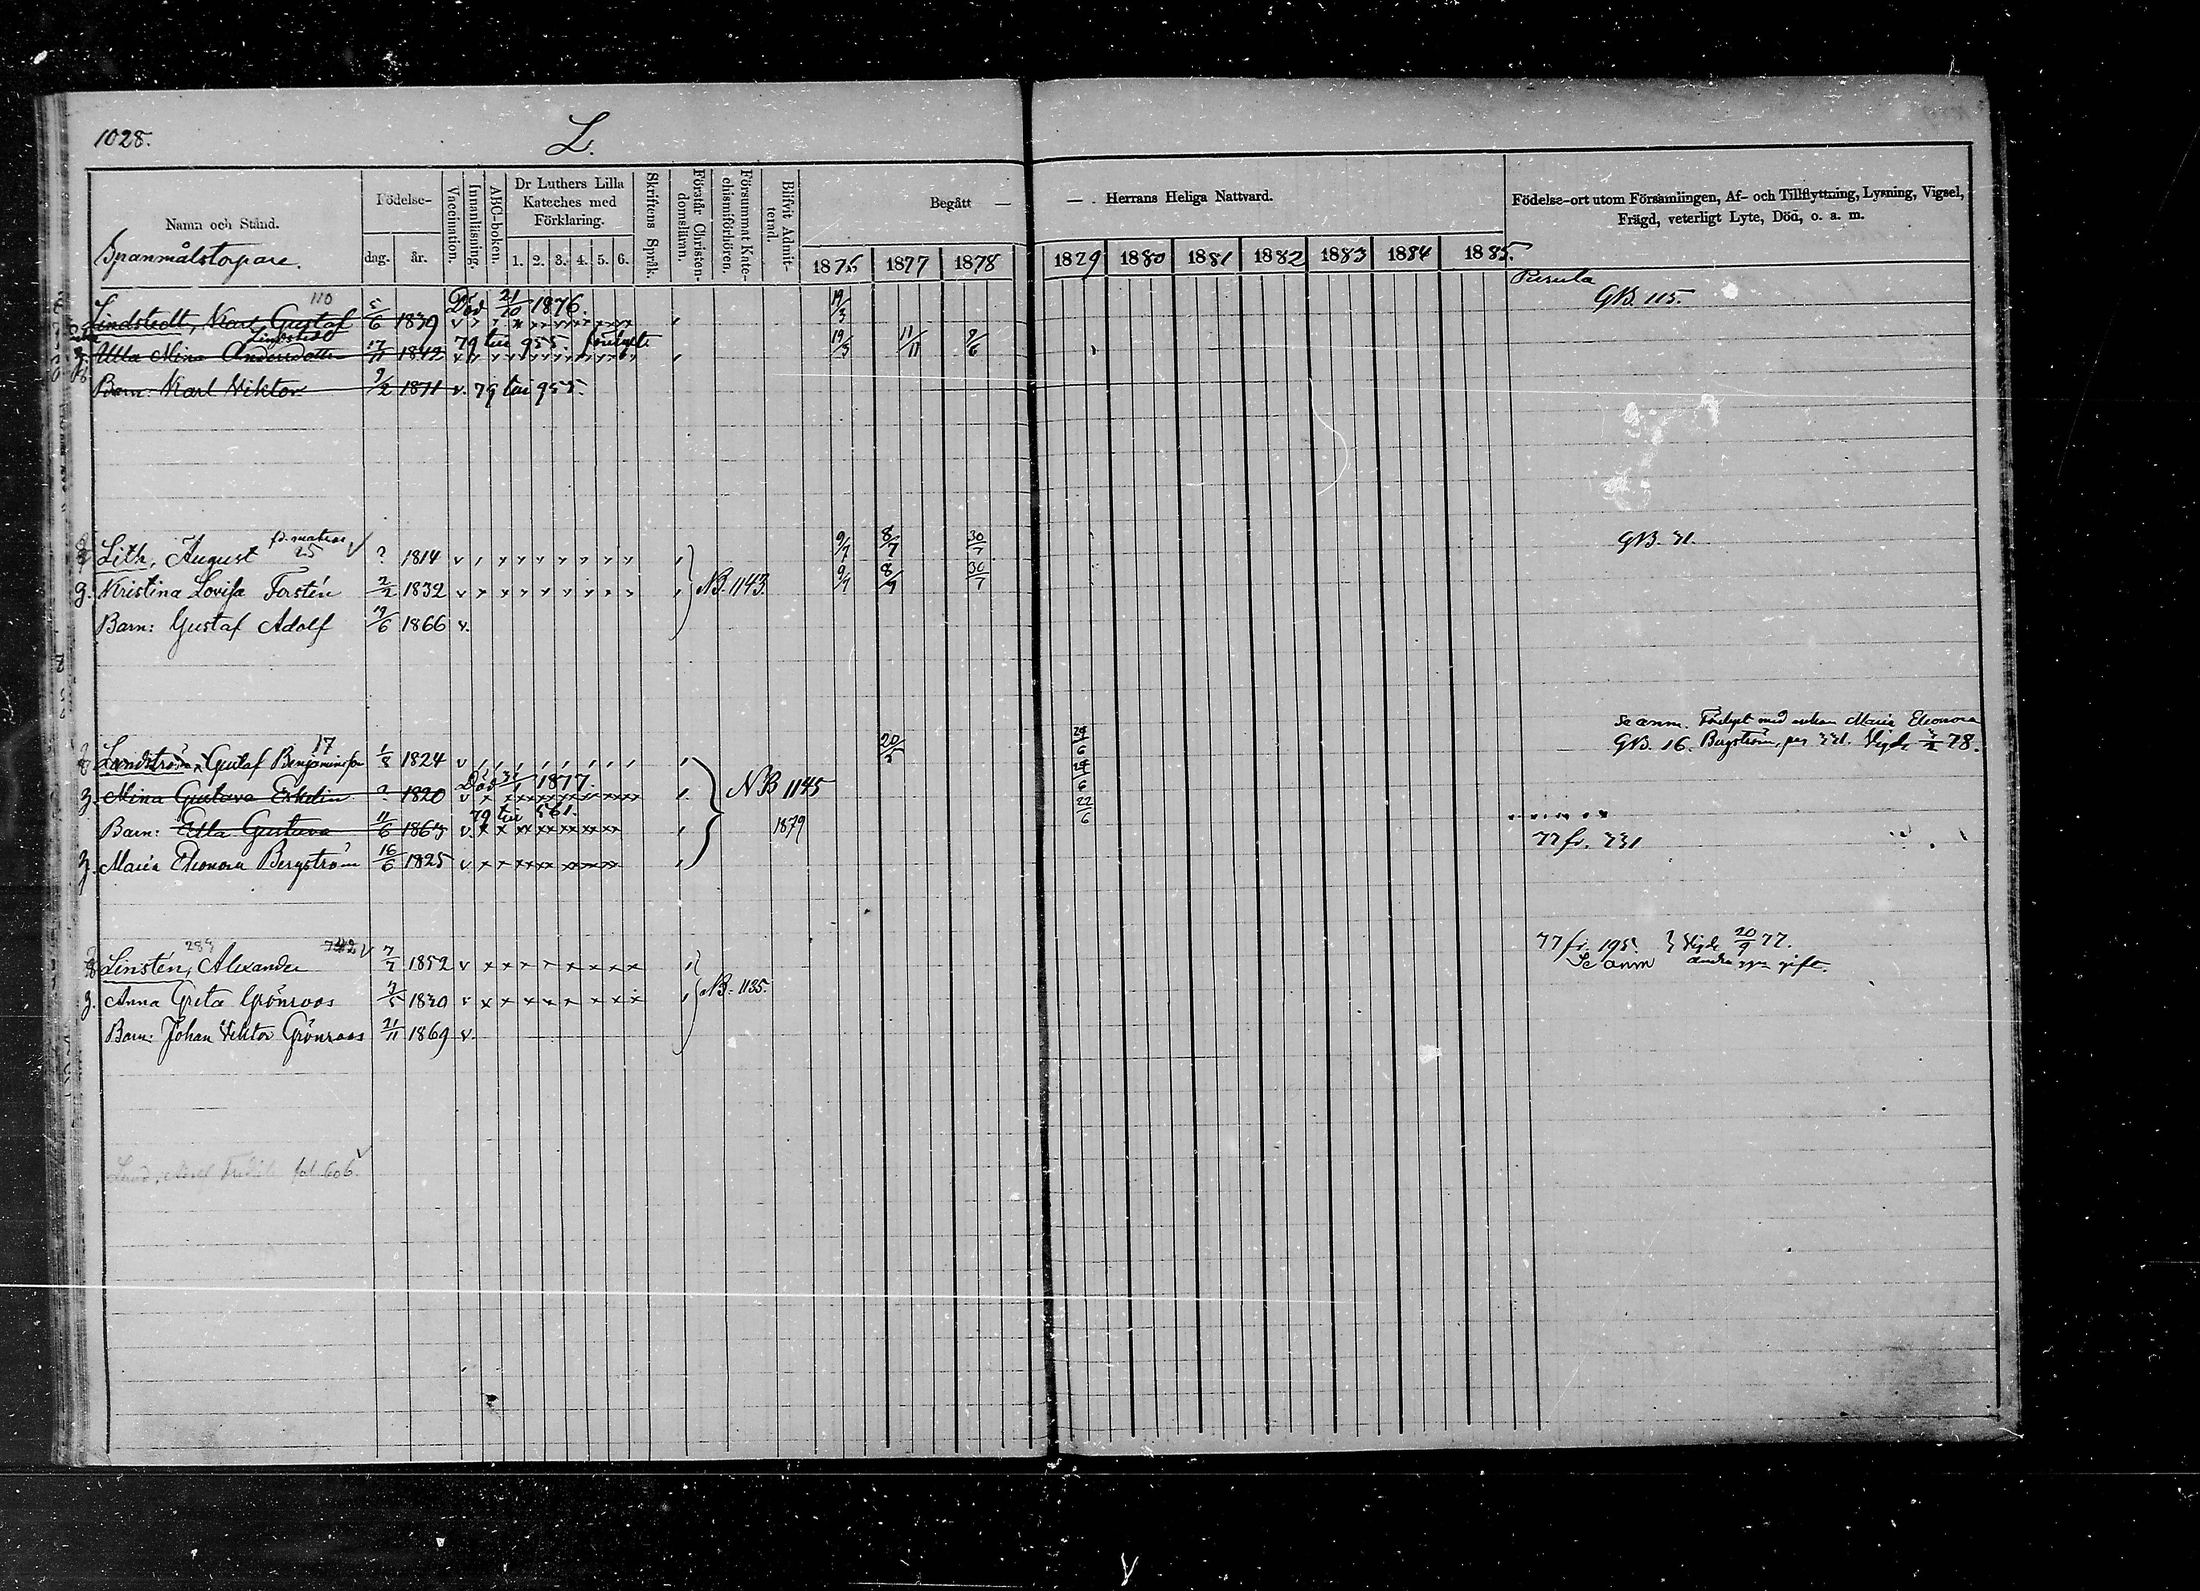 1028.
L.
Namn och Stånd.
Födelse-
dag.
år.
Vaccination.
Innanläsning.
ABC-boken.
Dr Luthers Lilla
Kateches med
Förklaring.
1. 2. 3. 4. 5. 6.
Skriftens Språk.
Förstår Christen-
domsläran.
Försummat Kate-
chismiförhören.
Blifvit Admit-
terad.
Begått — — Herrans Heliga Nattvard.
1876 1877 1878 1879 1880 1881 1882 1883 1884 1885.
Födelse-ort utom Församlingen, Af- och Tillflyttning, Lysning, Vigsel,
Frägd, veterligt Lyte, Död, o. a. m.
Spanmålstorpare.
Pusula
110 Död 21/10 1876. 19/3 GB. 115.
Lindstedt, Karl Gustaf 5/6 1839
Lindstedt 79 till 955. 19/3 11/11 9/6
Ulla Mina Andersdotter 17/11 1842
Barn: Karl Viktor 9/2 1871 v. 79 till 955.
Lith, August 25 ? 1814 9/7 8/7 30/7 GB. 31.
g. Kristina Lovisa Forstén 2/2 1832 NB. 1143. 9/7 8/7 30/7
Barn: Gustaf Adolf 19/6 1866 v.
Se anm. Maria Eleonora
GB. 16. Bergström, Vigde 78.
17
Landström, Gustaf Benjaminsson 1/8 1824 29/6
Död 1877.
g. Mina Gustava Ekelin ? 1820 NB 1145
79 till 561. 22/6
Barn: Ella Gustava 11/6 1863 1879
77 fr. 331
g. Maria Eleonora Bergström 16/6 1825
289 742
Linstén, Alexander 7/7 1852 77 fr. 195. Vigde 20/9 77.
Se anm andra ggn gift.
g. Anna Greta Grönroos 1830 NB. 1135.
Barn: Johan Viktor Grönroos 21/11 1869 v.
Lund, fol 606.